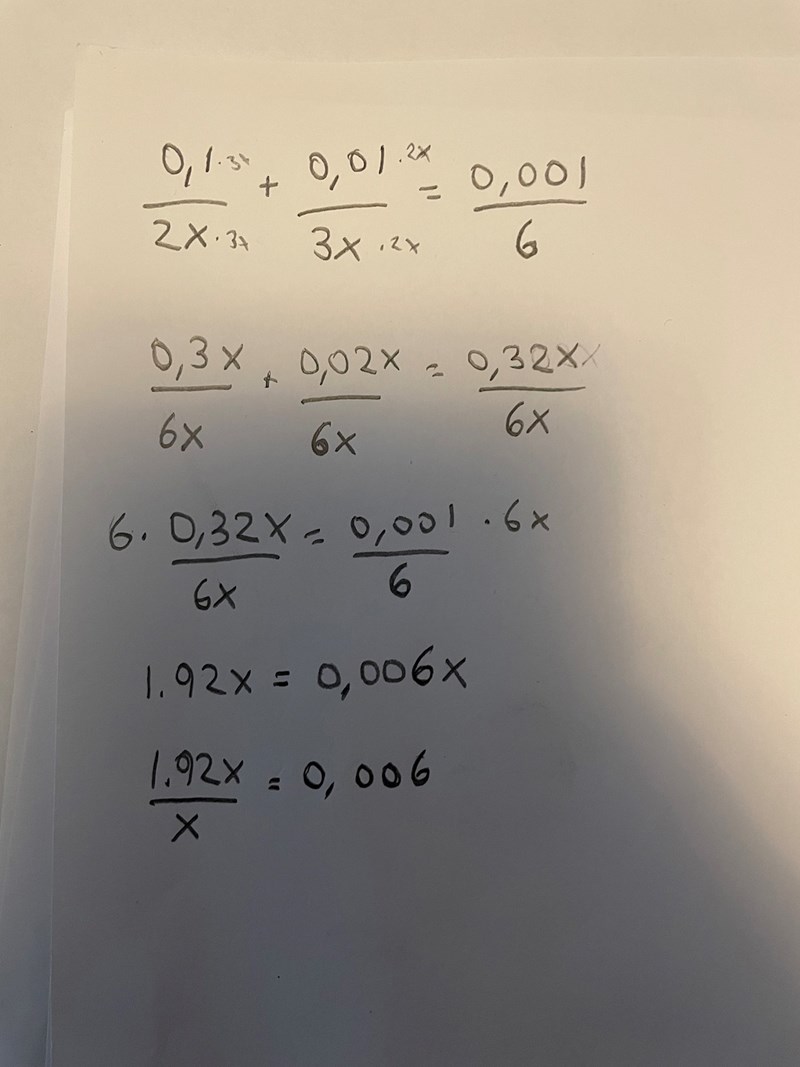 0,1·3x/2x·3x + 0,01·2x/3x·2x = 0,001/6
0,3x/6x + 0,02x/6x = 0,32xx/6x
6· 0,32x/6x = 0,001/6 ·6x
1.92x = 0,006x
1.92x/x = 0,006